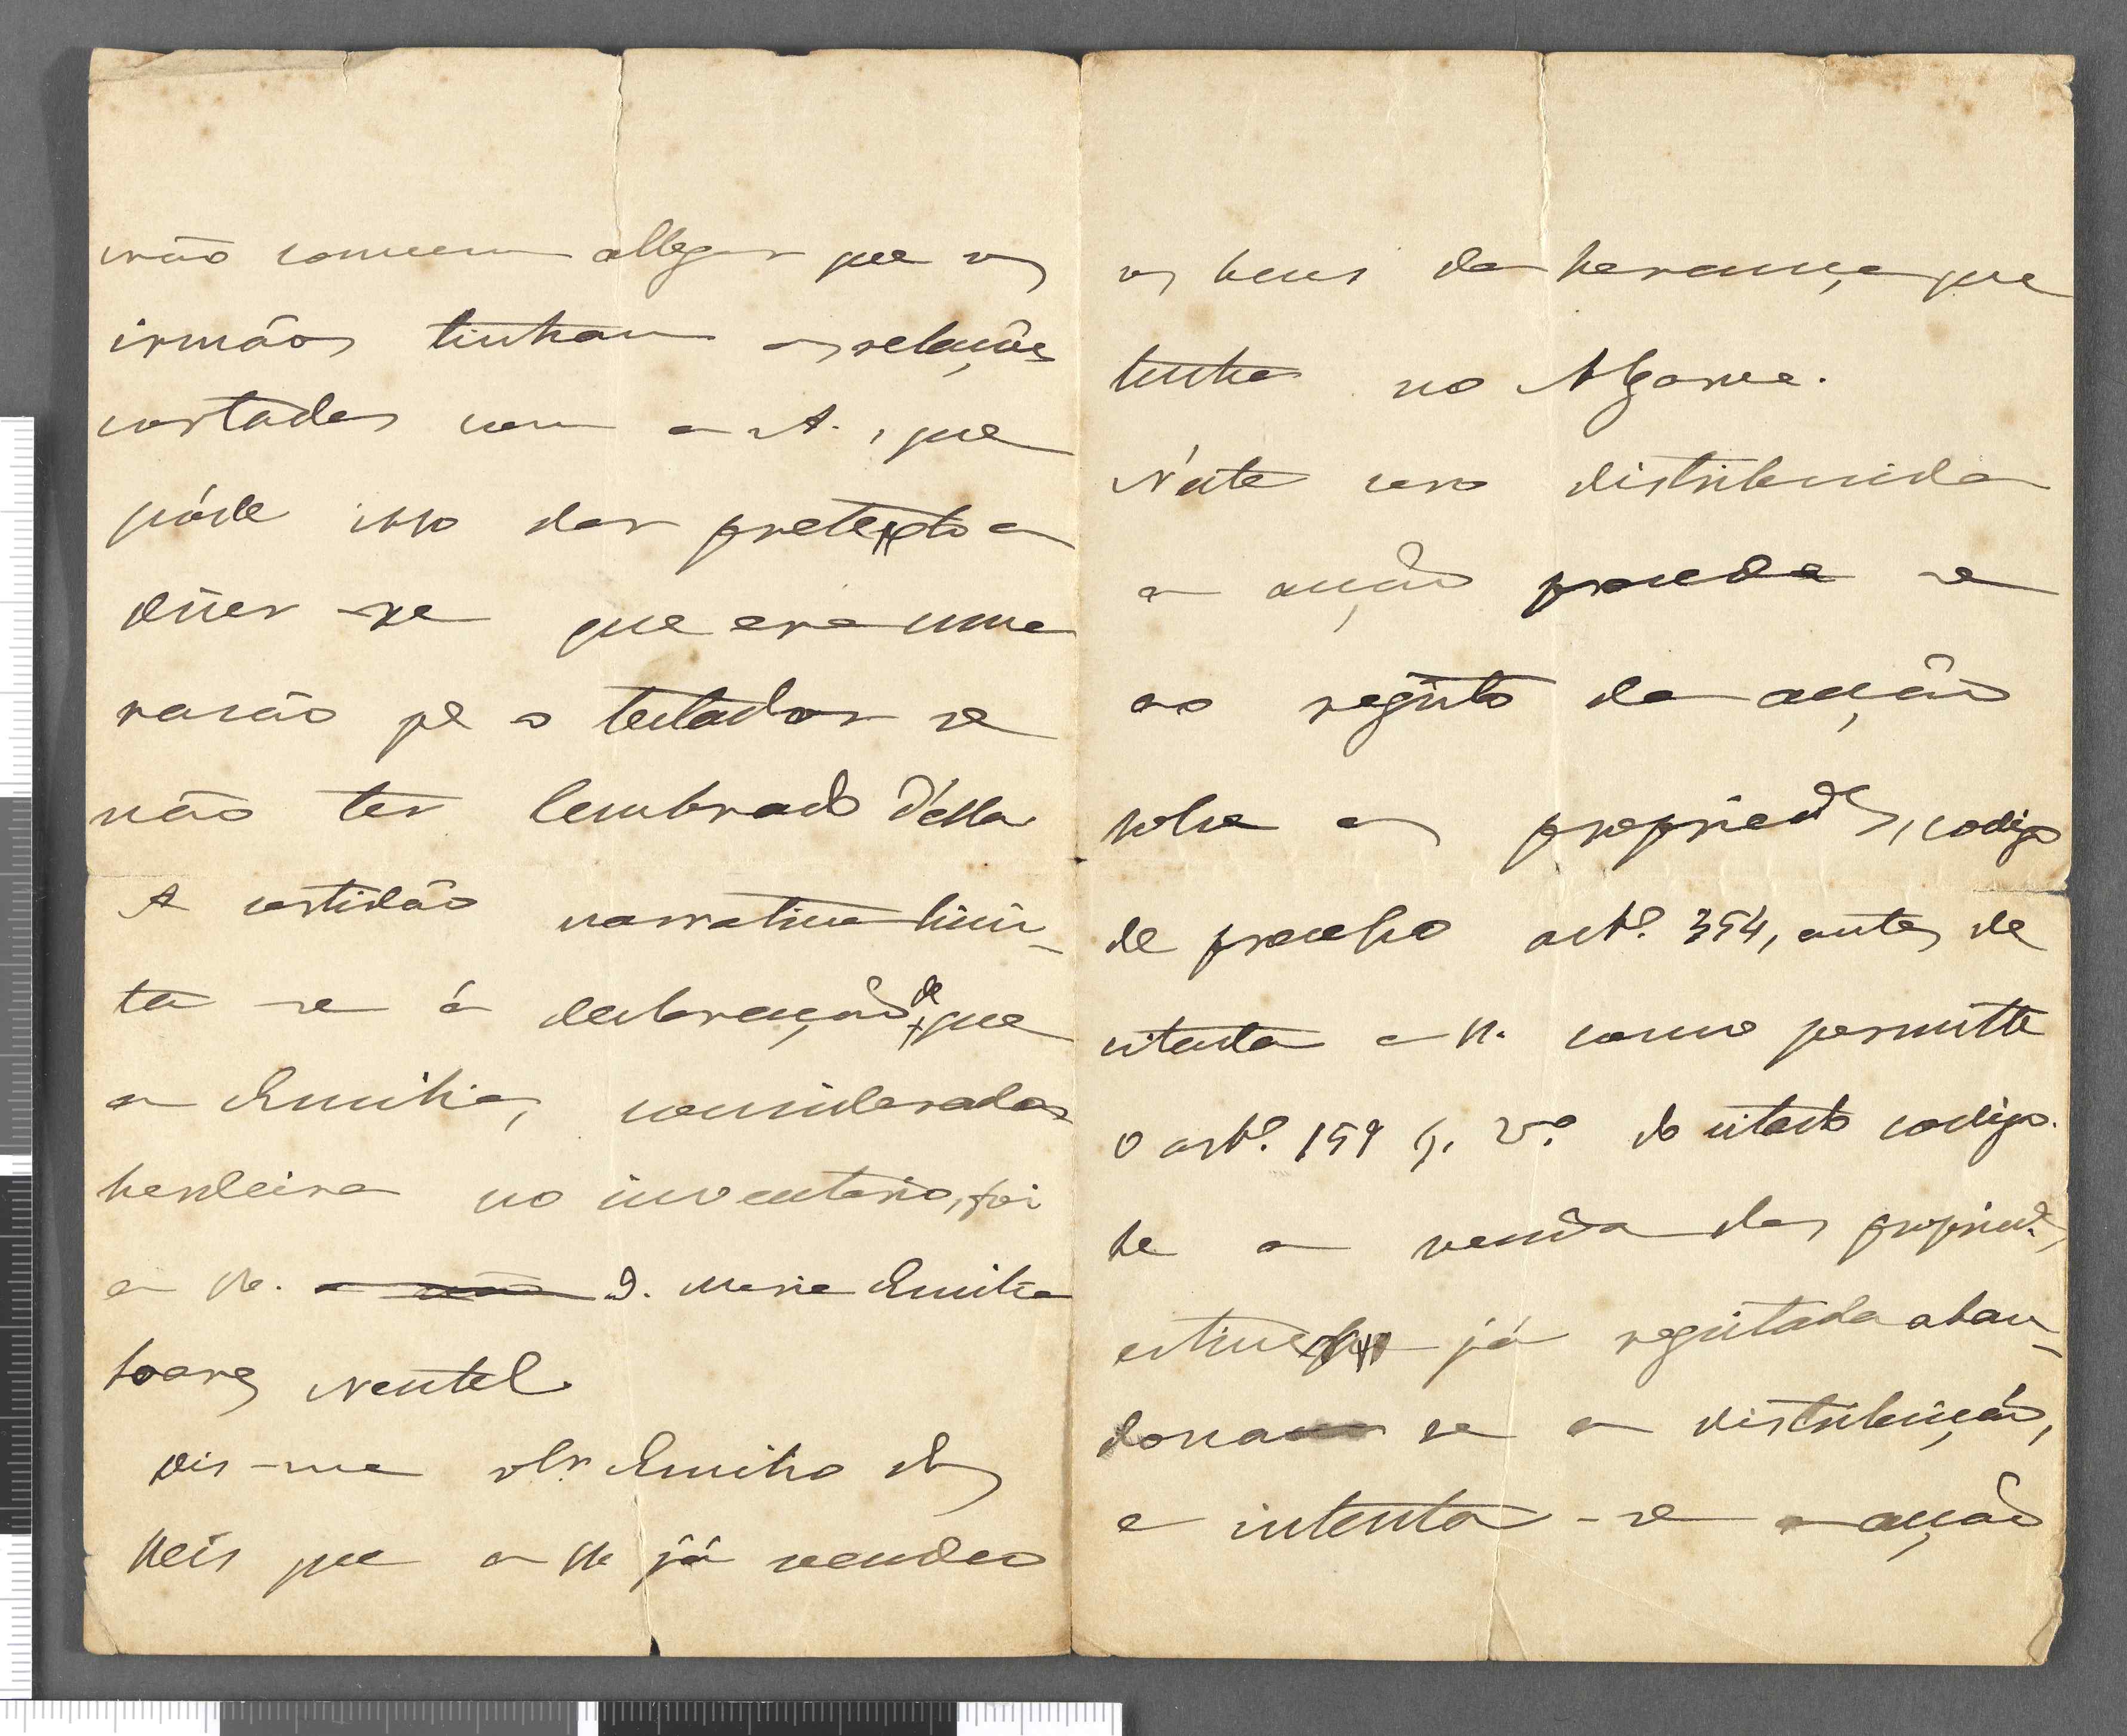 não convem allegar que os
irmãos tinham as relações
cortadas com a A., que
póde isso dar pretexto a
dizer-se que era uma
rasão pª o testador se
não ter lembrado d'ella
A certidão narrativa limi-
ta-se á declaração de que
a Emilia, considerada
herdeira no inventario, foi
a R. D. Maria Emilia
Soares Neutel
Diz-me o Sr. Emilio dos
Reis que a R. já vendeo
os bens da herança que
tinha no Algarve.
N'este caso distribuida
a acção proceda se
ao registo da acção
sobre as propried.es, codigo
de processo art.º 354, antes de
citada a R. como permitte
o art.º 159 §. 2.º do citado codigo.
Se a venda das propried.es
estiver já registada aban-
dona se a distribuição,
e intenta-se a acção